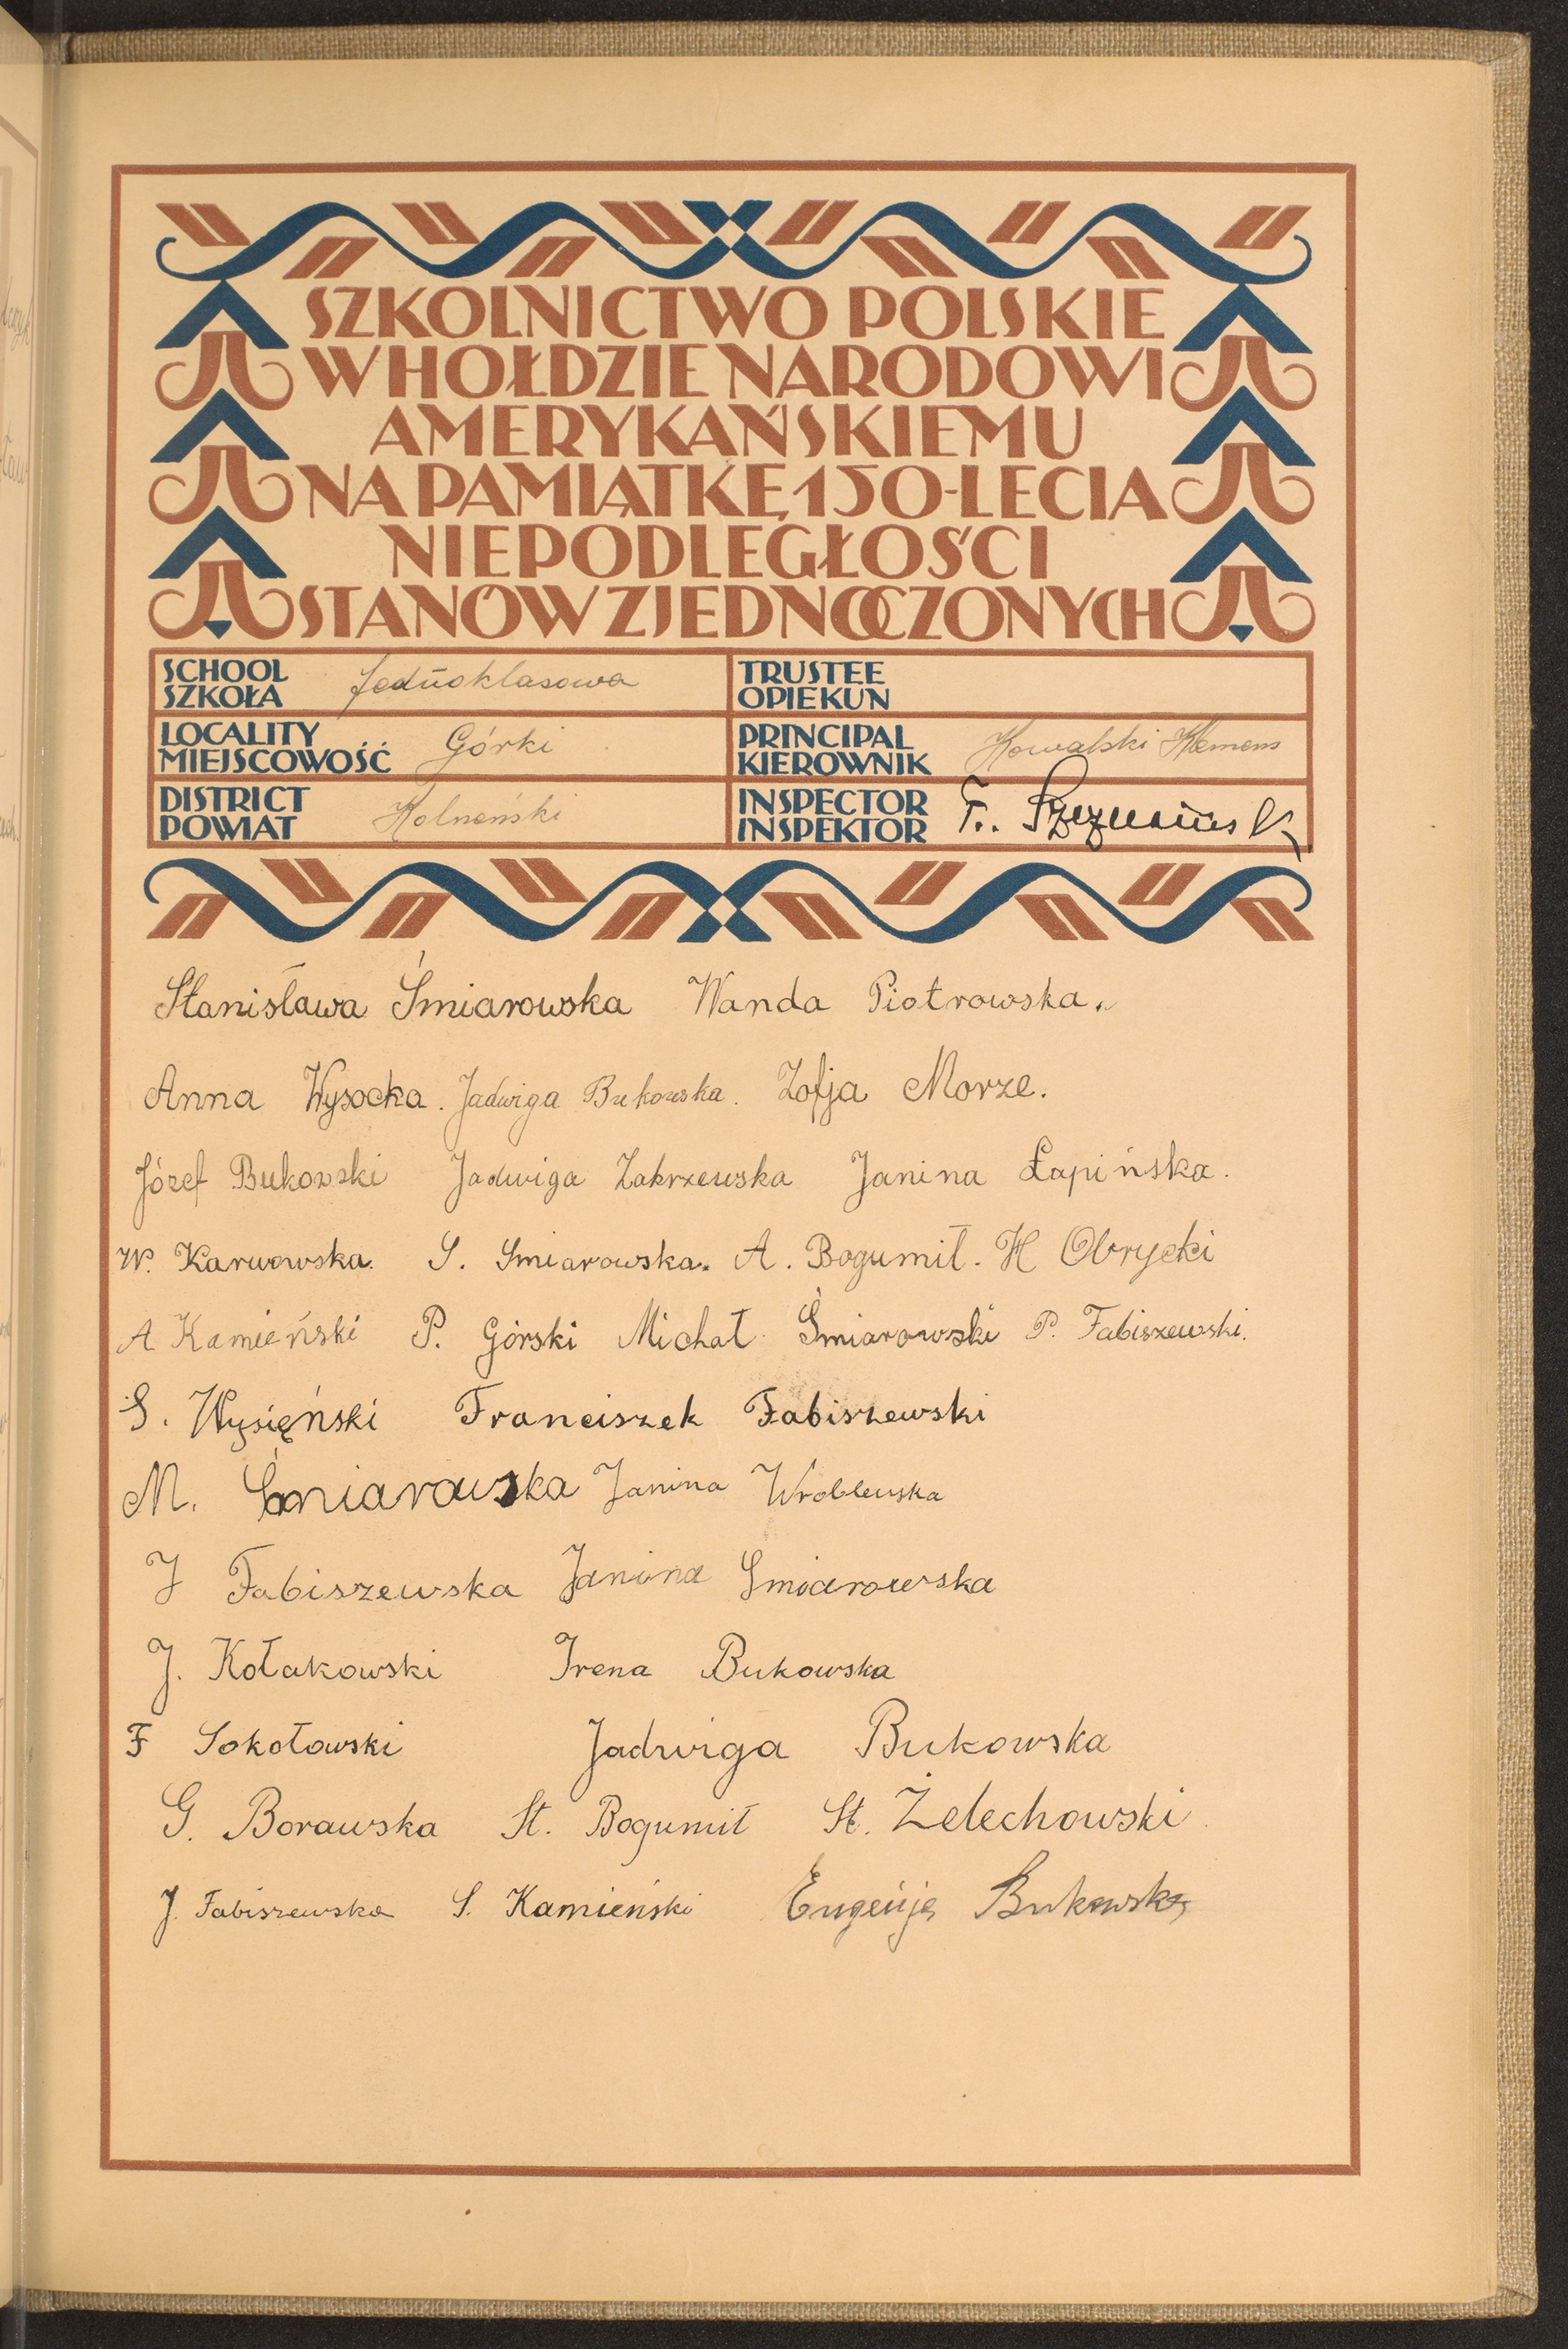 SZKOLNICTWO POLSKIE
W HOŁDZIE NARODOWI
AMERYKAŃSKIEMU
NA PAMIĄTKĘ 150-LECIA
NIEPODLEGŁOŚCI
STANÓW ZJEDNOCZONYCH
SCHOOL SZKOŁA Jednoklasowa
TRUSTEE OPIEKUN
LOCALITY MIEJSCOWOŚĆ Górki
PRINCIPAL KIEROWNIK Kowalski Klemens
DISTRICT POWIAT Kolneński
INSPECTOR INSPEKTOR F.
Stanisława Śmiarowska Wanda Piotrowska.
Anna Wysocka. Jadwiga Bukowska. Zofja Morze.
Józef Bukowski Jadwiga Zakrzewska Janina Łapińska.
W. Karwowska. S. Smiarowska. A. Bogumił. H Obrycki
A Kamieński P. Górski Michał Śmiarowski P. Fabiszewski.
S. Wysięński Franciszek Fabiszewski
M. Śmiarowska Janina Wroblewska
J Fabiszewska Janina Smiarowska
J. Kołakowski Irena Bukowska
F Sokołowski Jadwiga Bukowska
G. Borawska St. Bogumił St. Żelechowski
J. Fabiszewska S. Kamieński Eugenja Bukowska